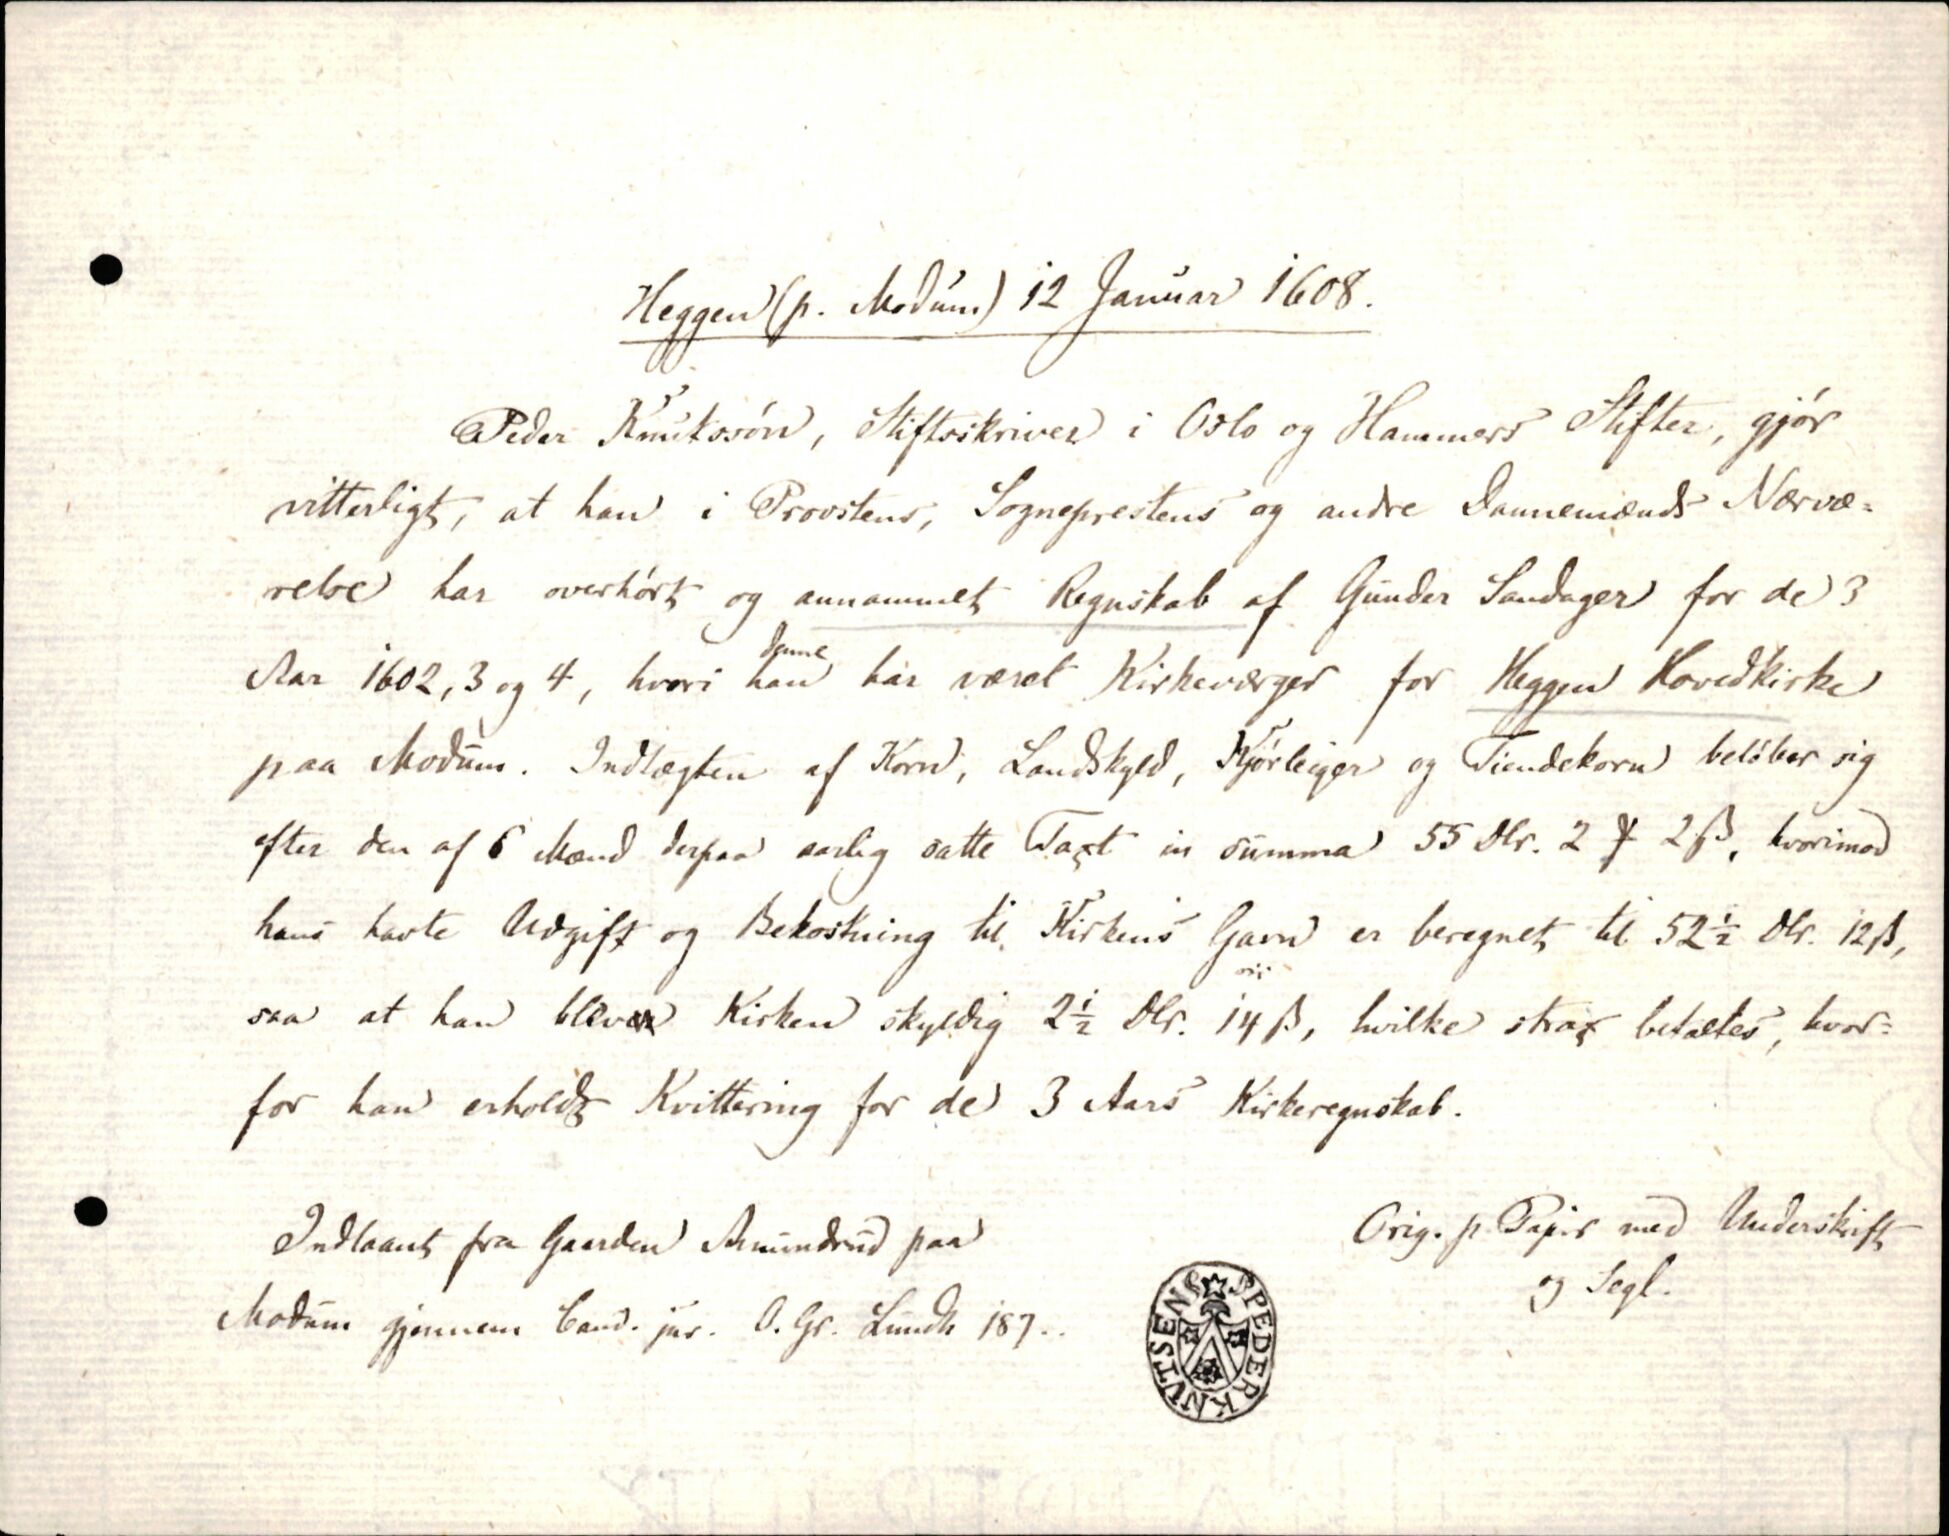 Heggen (p. Modum) 12 Januar 1608.
Peder Knutssøn, Stiftsskriver i Oslo og Hammers Stifter, gjør
vitterligt, at han i Provstens, Sogneprestens og andre Dannemænds Nærvæ=
relse har overhørt og annammet Regnskab af Gunder Sandager for de 3
Aar 1602, 3 og 4, hvori denne han har været Kirkeværger for Heggen Hovedkirke
paa Modum. Indtægten af Korn, Landskyld, Kjørleiger og Tiendekorn beløber sig
efter den af 6 Mænd derpaa aarlig satte Taxt in summa 55 Dlr. 2 ₰ 2 ß, hvorimod
hans havte Udgift og Bekostning til Kirkens Gavn er beregnet til 52 1/2 Dlr. 12 ß,
saa at han blever Kirken skyldig 2 1/2 Dlr. 14 ß, hvilke strax betaltes, hvor=
for han erholdt Kvittering for de 3 Aars Kirkeregnskab.
Indlaant fra Gaarden Amundrud paa
Modum gjennem Cand. jur. O. Gr. Lundh 187..
Orig. p. Papir med Underskrift
og Segl.
S PEDER KNVTSENS